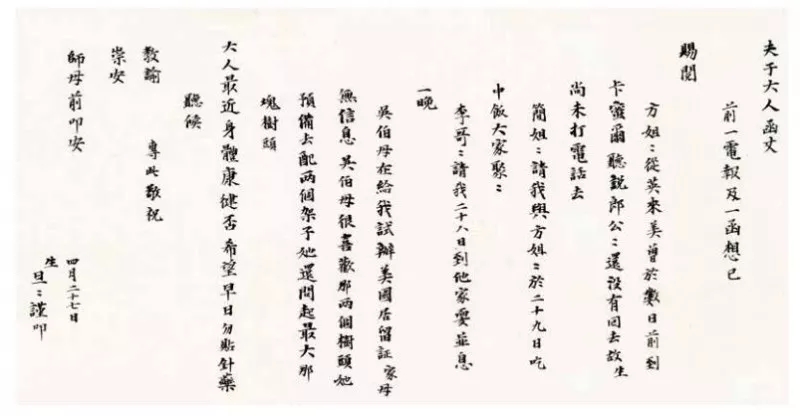 夫子大人函丈
前一電報及一函想已
賜閱
方姐〻從英來美曾於數日前到
卡蜜爾聽說郎公〻還沒有回去故生
尚未打電話去
簡姐〻請我與方姐〻於二十九日吃
中飯大家聚〻
李哥〻請我二十八日到他家耍並息
一晚
吳伯母在給我試辦美國居留証家母
無信息吳伯母很喜歡那兩個樹頭她
預備去配兩個架子她還問起最大那
塊樹頭
大人最近身體康健否希望早日勿貼針藥
聽候
教諭 專此敬祝
崇安
師母前叩安
四月二十七日
生 旦〻謹叩